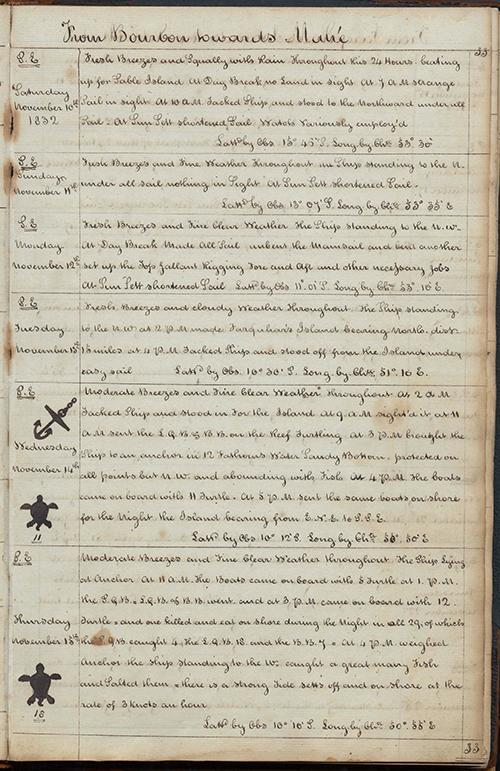 From Bourbon towards Mahé
33
S.E
Saturday
November 10th
1832
Fresh Breezes and Squally with Rain Throughout this 24 Hours. beating
up for Sable Island. At Day Break no Land in sight. At 7 A.M strange
Sail in sight. At 10 A.M. Tacked Ship and stood to the Northward under all
Sail. At Sun Sett shortened Sail. Watch Variously employ'd
Lattd by Obs. 15° 45" S. Long by Chr. 53° 30'
S.E
Sunday
November 11th
Fresh Breezes and Fine Weather Throughout. The Ship standing to the N.
under all sail nothing in Sight. At Sun Sett shortened Sail.
Lattd by Obs 13° 07" S. Long by Chr. 53° 55' E
S.E
Monday
November 12th
Fresh Breezes and Fine Clear Weather. The Ship standing to the N.W.
At Day Break Made All Sail. unbent the Mainsail and bend another
set up the Top Gallant Rigging Fore and Aft and other necessary jobs
At Sun Sett shortened Sail Lattd by Obs 11° 01" S. Long by Chr. 53° 10' E.
S.E
Tuesday
November 13th
Fresh Breezes and cloudy Weather Throughout. The Ship standing
to the N.W. at 2 P.M made Farquhar's Island bearing North. dist.
15 miles. at 4 P.M Tacked Ship and stood off from the Island under
easy sail Lattd by Obs. 10° 30' S. Long. by Chr. 51° 10' E.
S.E
Wednesday
November 14th
11
Moderate Breezes and Fine Clear Weather throughout. At 2 A.M
Tacked Ship and stood in For the Island. At 9 A.M sight'd it, at 11
A.M sent the L.Q.B & B.B. on the Reef Turtling. At 3 P.M brought the
Ship to an anchor in 12 Fathoms Water Sandy Bottom. protected on
all points but N.W. and abounding with Fish. At 4 P.M. the boats
came on board with 11 Turtle. At 5 P.M. sent the same boats on shore
for the Night the Island bearing from E.N.E. to S.S.E.
Lattd by Obs 10° 12" S. Long by Chr. 50° 50' E
S.E
Thursday
November 15th
18
Moderate Breezes and Fine Clear Weather throughout. The Ship Lying
at Anchor. At 11 A.M. The Boats came on board with 5 Turtle at 1. P.M.
the S.Q.B. & L.Q.B. & B.B. went. and at 3 P.M. came on board with 12
Turtle. and one killed and eat on shore during the Night in all 29. of which
the S.Q.B caught 4. the L.Q.B. 18. and the B.B. 7. At 4 P.M. weighed
Anchor the Ship standing to the W. caught a great many Fish
and Salted them. there is a strong Tide setts off and on Shore at the
rate of 3 Knots an hour
Lattd by Obs 10° 10' S. Long by Chr. 50°. 55' E
33